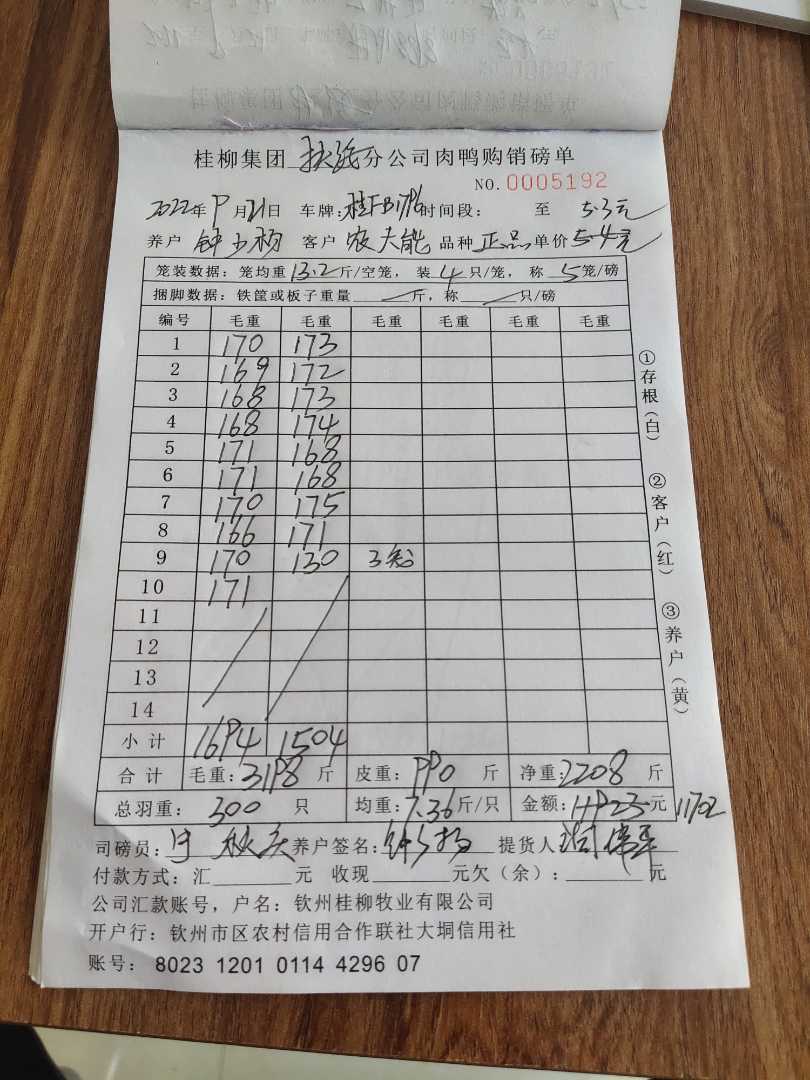 桂柳集团 扶绥 分公司肉鸭购销磅单
NO. 0005192
2022年9月21日 车牌: 时间段: 至 5.3元
养户 钟 客户 农大能 品种 正品 单价 5.4元
笼装数据: 笼均重 13.2 斤/空笼, 装 4 只/笼, 称 5 笼/磅
捆脚数据: 铁筐或板子重量 斤, 称 只/磅
编号 毛重 毛重 毛重 毛重 毛重 毛重
1 170 173
2 169 172
3 168 173
4 168 174
5 171 168
6 171 168
7 170 175
8 166 171
9 170 130 3
10 171
11
12
13
14
小计 1694 1504
合计 毛重: 3198 斤 皮重: 990 斤 净重: 2208 斤
总羽重: 300 只 均重: 7.36 斤/只 金额: 11923 元 11702
司磅员: 养户签名: 钟 提货人
付款方式: 汇 元 收现 元欠(余): 元
公司汇款账号, 户名: 钦州桂柳牧业有限公司
开户行: 钦州市区农村信用合作联社大垌信用社
账号: 8023 1201 0114 4296 07
①存根(白) ②客户(红) ③养户(黄)